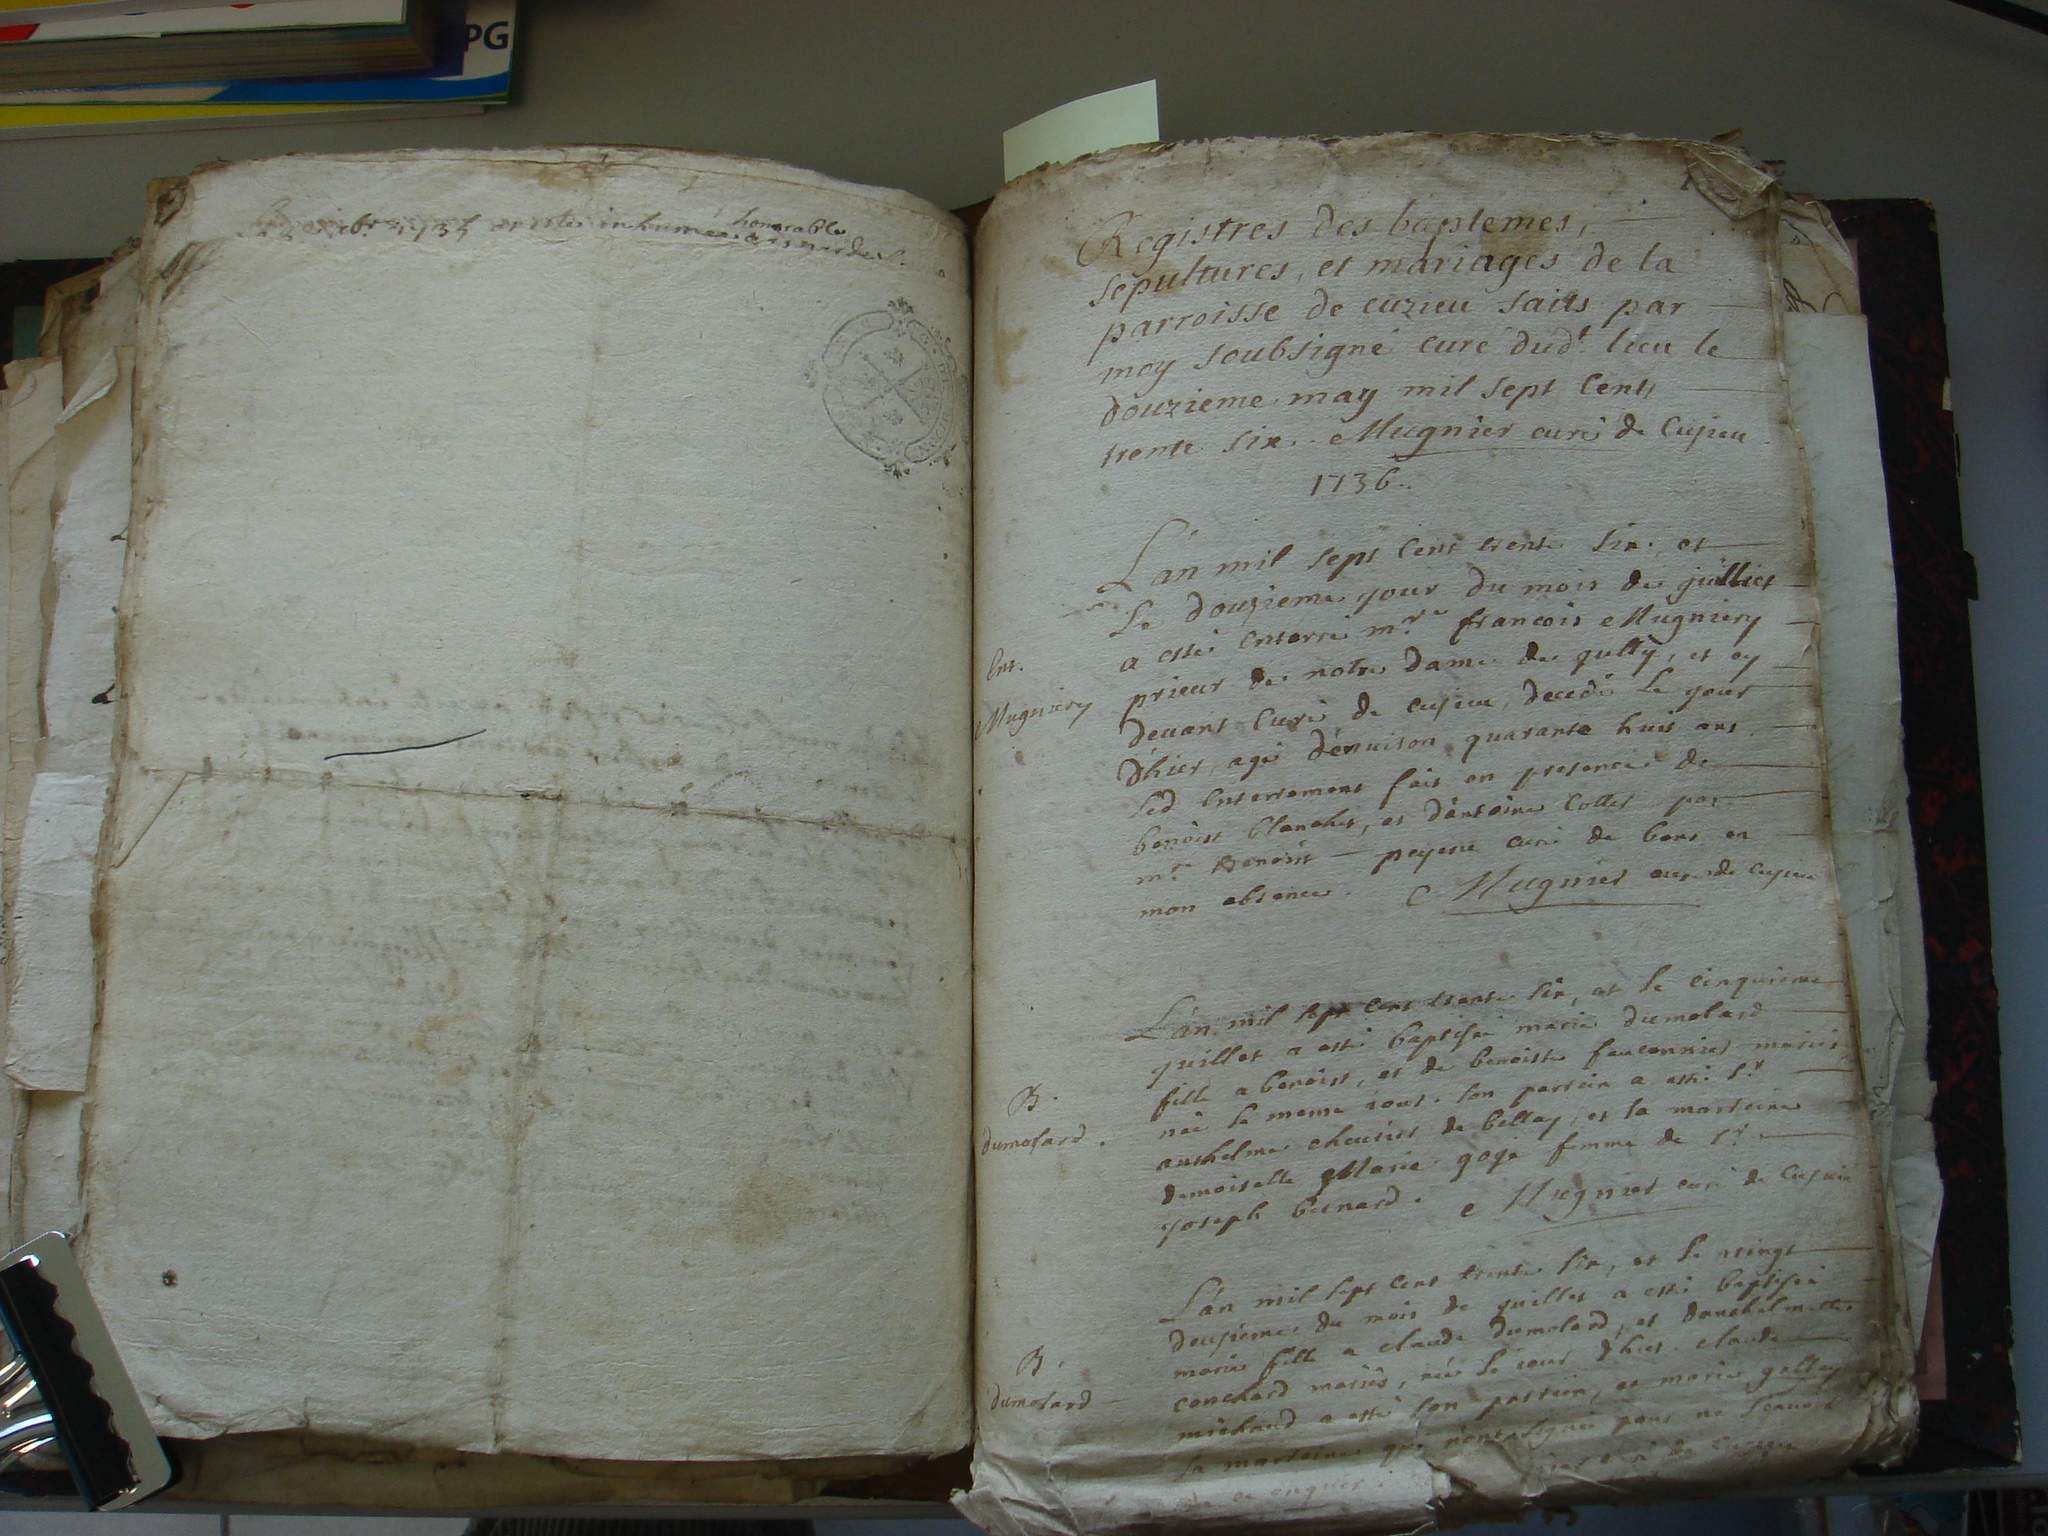 PG
1735 inhumé honorable
Registres des baptemes,
sepultures, et mariages de la
parroisse de cuzieu faits par
moy soubsigné curé dudt lieu le
douzieme may mil sept cents
trente six. Mugnier curé de Cusieu
1736.
L'an mil sept cent trente six, et
le douzieme jour du mois de juilliet
a esté enterré mre francois Mugniery
prieur de notre dame de , et cy
devant curé de cusieu, decedé le jour
d'hier, agé d'enuiron quarante huit ans.
led enterrement fait en presence de
benoist blanchet, et d'antoine Collet par
mre Benoist peysse curé de bons en
mon absence. Mugnier curé de cusieu
Ent.
Mugniery
L'an mil sept cent trente six, et le cinquieme
juillet a esté baptisée marie dumolard
fille a benoist, et de benoiste fauconnier mariés
née le meme jour. son parrein a esté sr
anthelme de bellay, et la marreine
demoiselle Marie goje femme de sr
joseph bernard. Mugnier curé de Cusieu
B.
dumolard.
L'an mil sept cent trente six, et le vingt
deuxieme du mois de juillet a esté baptisée
marie fille a claude dumolard, et d'anthelmette
conchard mariés, née le jour d'hier. claude
michaud a esté son parrein, et marie gallay
la marreine qui n'ont signé pour ne scavoir
de ce enquis.
B.
dumolard